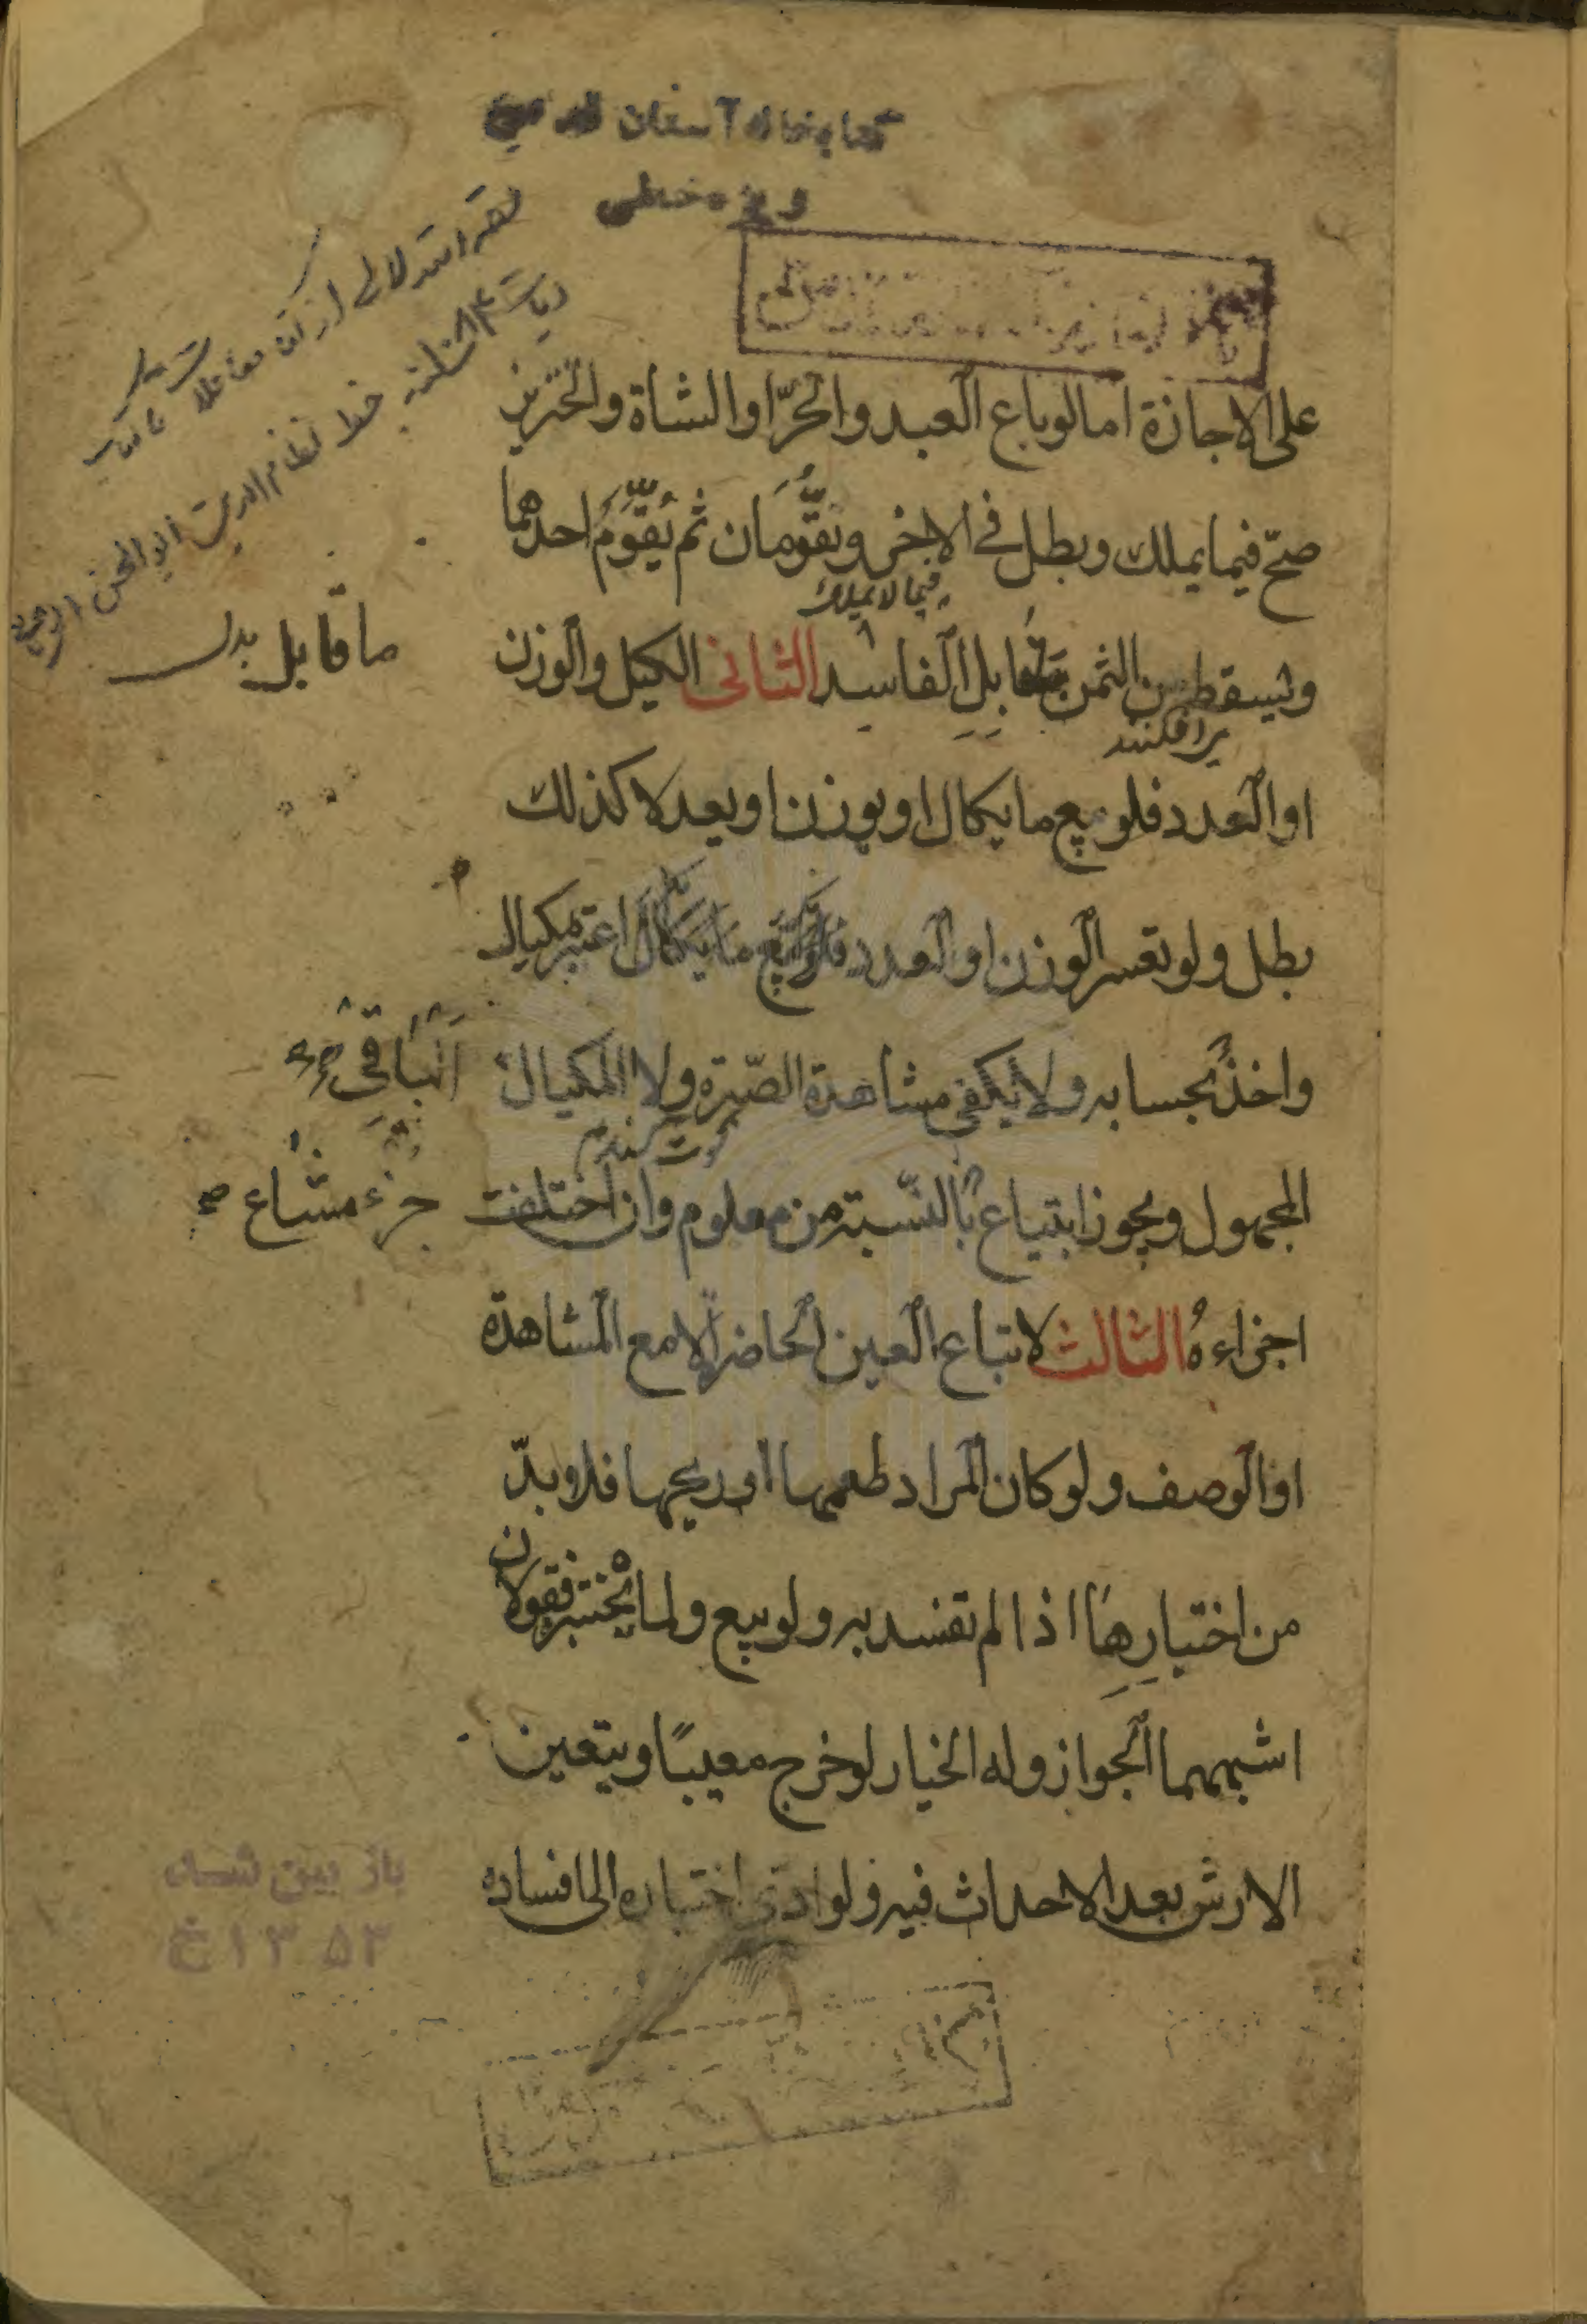 کتابخانه آستان قدس
ویژه خطی
على الاجازة اما لو باع العبد والحرّ او الشاة والخنزير
صحّ فيما يملك وبطل في الاخر ويقوَّمان ثم يُقوَّم احدهما
فيما لا يملك
ويسقط من الثمن بقابل الفاسد الثاني الكيل والوزن
ما قابل بدل
برافكند
او العدد فلو بيع ما يكال او يوزن او يعد لا كذلك
بطل ولو تعسر الوزن او العدد فلو بيع ما يكال اعتبر بمكيال
واخذ بحسابه ولا يكفى مشاهدة الصّبرة ولا المكيال
الباقي
المجهول ويجوز ابتياع بالنّسبة من معلوم وان اختلفت
جزء مشاع صح
اجزاءهُ الثالث لا تباع العين الحاضرة الا مع المشاهدة
او الوصف ولو كان المراد طعمها او ريحها فلا بدّ
من اختبارِها اذا لم تفسد به ولو بيع ولما يختبر فقولان
اشبههما الجواز وله الخيار لو خرج معيبًا ويتعين
الارش بعد الاحداث فيه ولو ادى اختباره الى افساده
باز بین شد
۱۳۵۳ خ